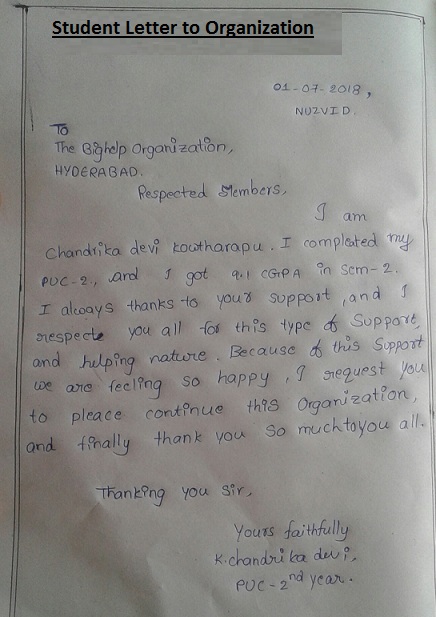 Student Letter to Organization
01-07-2018,
NUZVID.
To
The Bighelp Organization,
HYDERABAD.
Respected Members,
I am
Chandrika devi Koutharapu. I completed my
PUC-2, and I got 9.1 CGPA in Sem-2.
I always thanks to your support, and I
respecte you all for this type of Support,
and helping nature. Because of this Support
we are feeling so happy, I request you
to pleace continue this Organization,
and finally thank you so much to you all.
Thanking you sir,
Yours faithfully
K.chandrika devi,
PUC-2nd year.